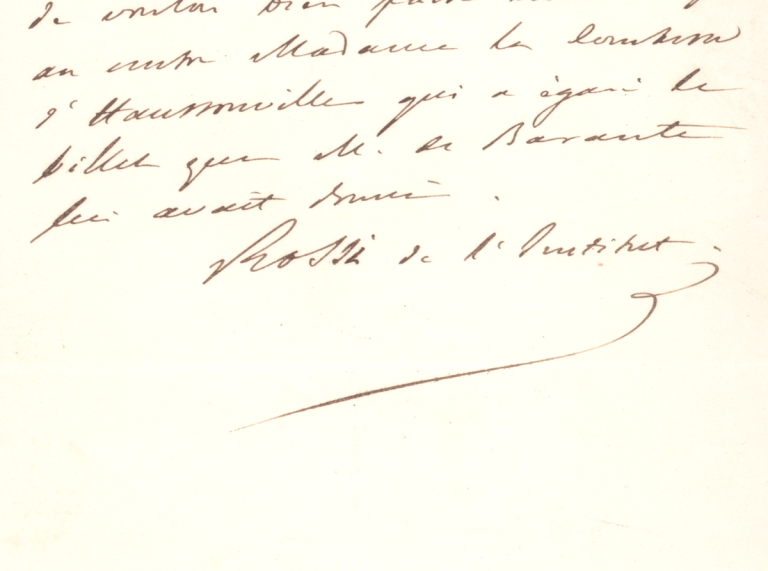 de vouloir bien
au centre Madame la Comtesse
d'Haussonville qui a égaré le
billet que M. de Barante
lui avait donné.
Rossi de l'Institut.